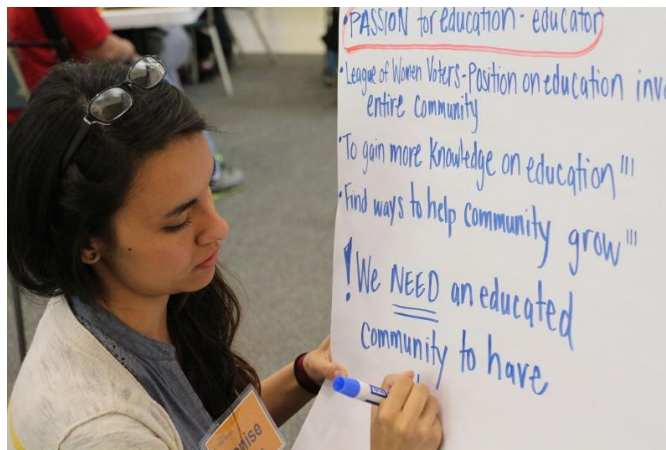 •PASSION for education - educator
•League of Women Voters-Position on education
entire community
•To gain more Knowledge on education"'
•Find ways to help community grow"'
! We NEED an educated
community to have